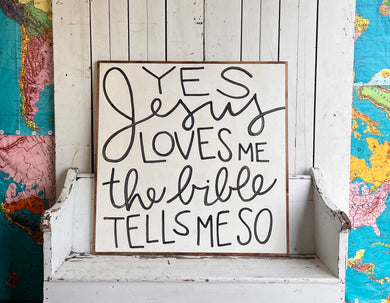 YES
Jesus
LOVES ME
the bible
TELLS ME SO